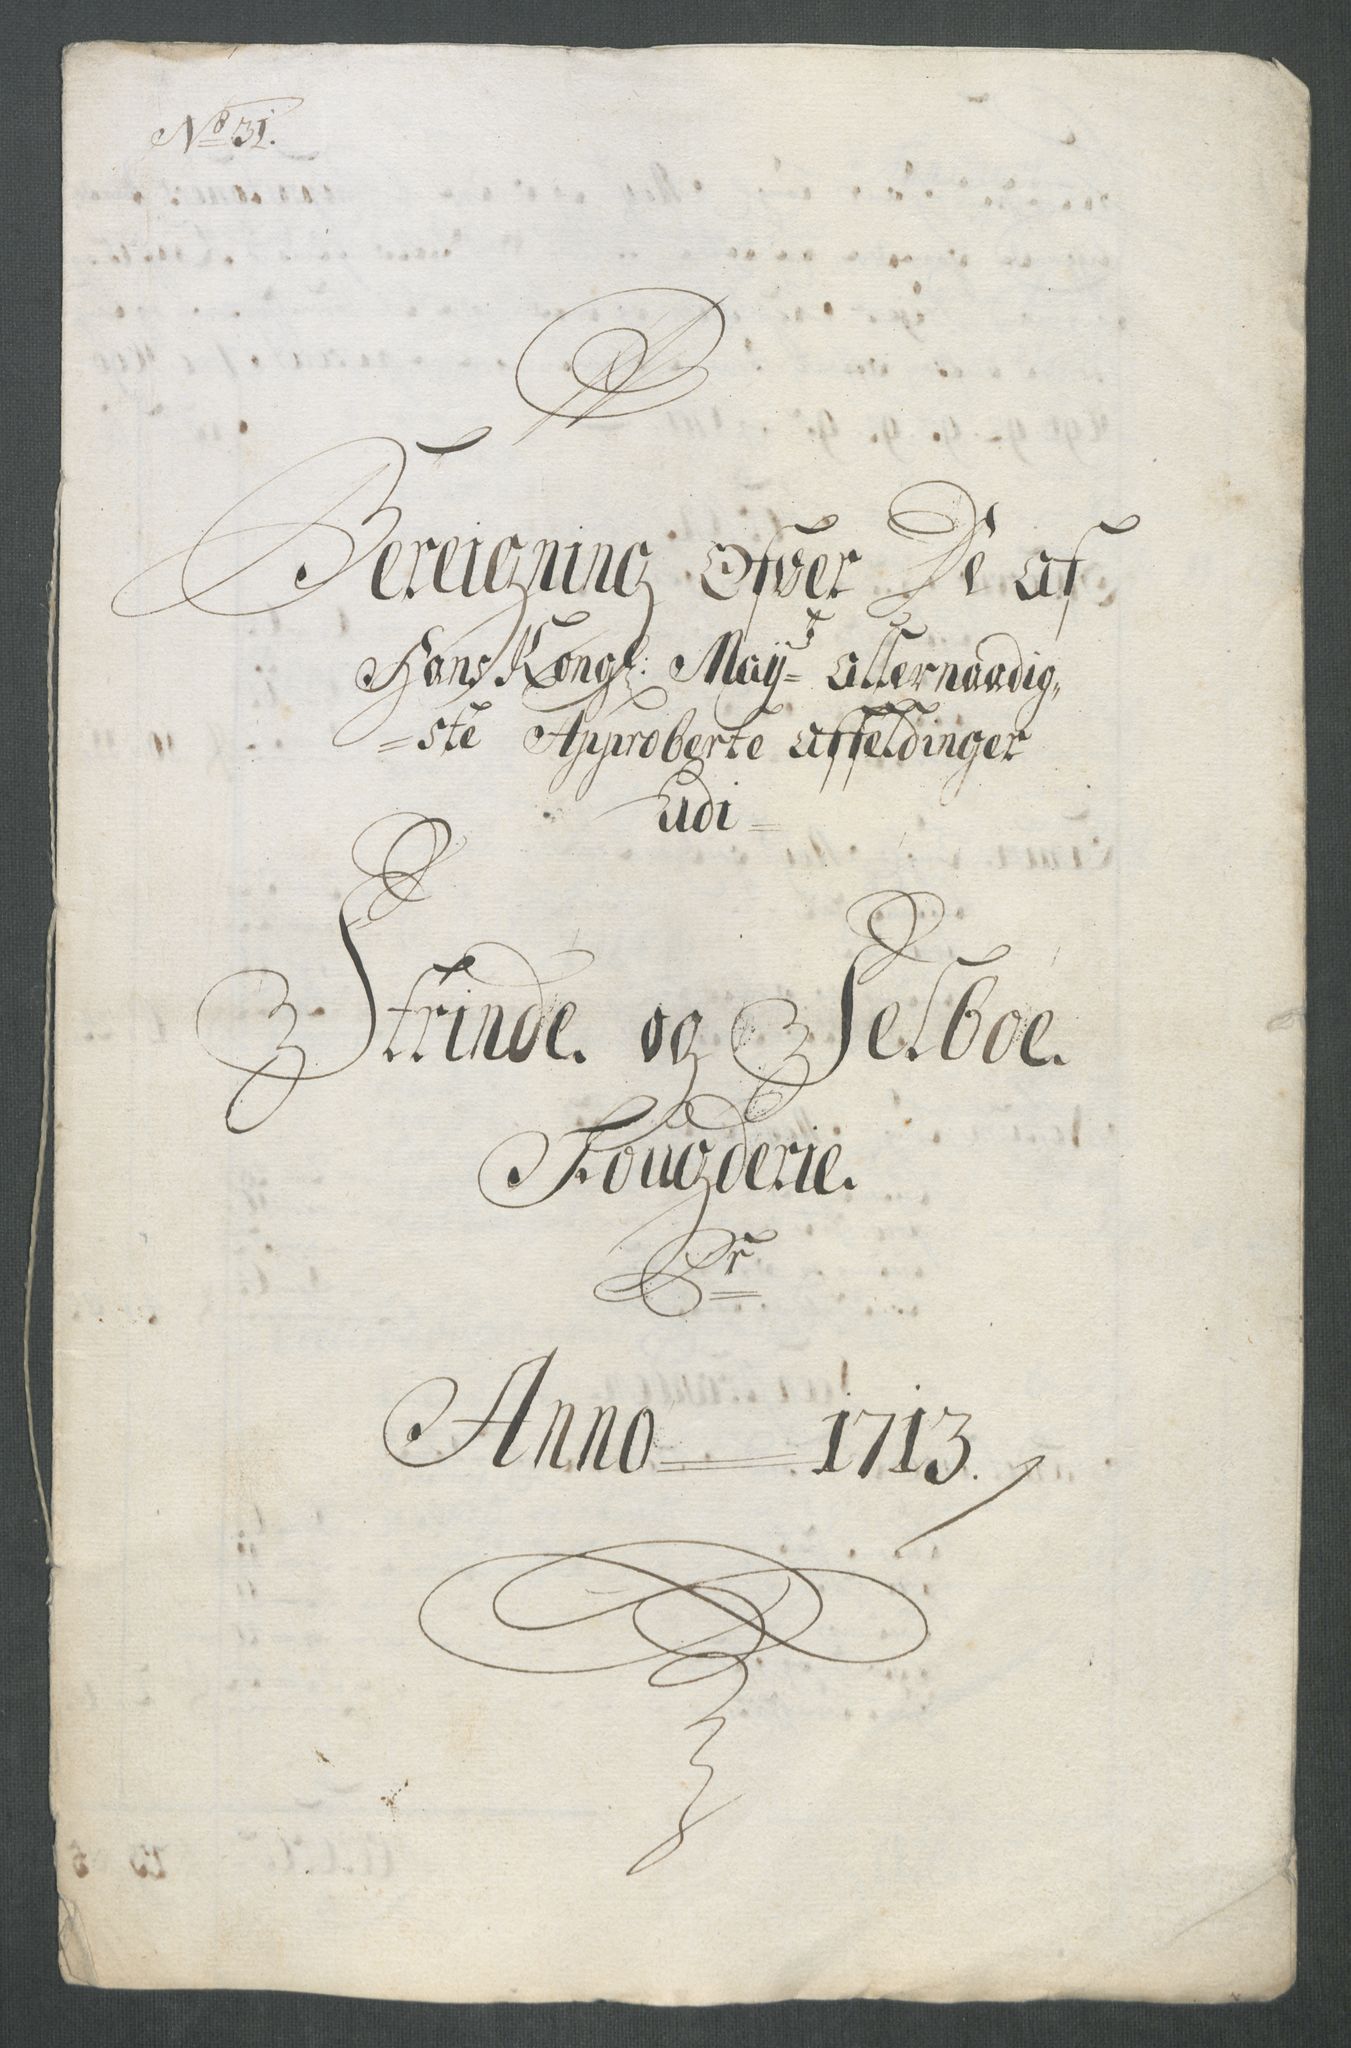 No 31.
Bereigning Ofver De af
Hans Kongl: May=t allernaadig,
=ste Approberte affeldinger
udi=
Strinde. og Selboe.
Fougderie.
Pr
Anno = 1713.